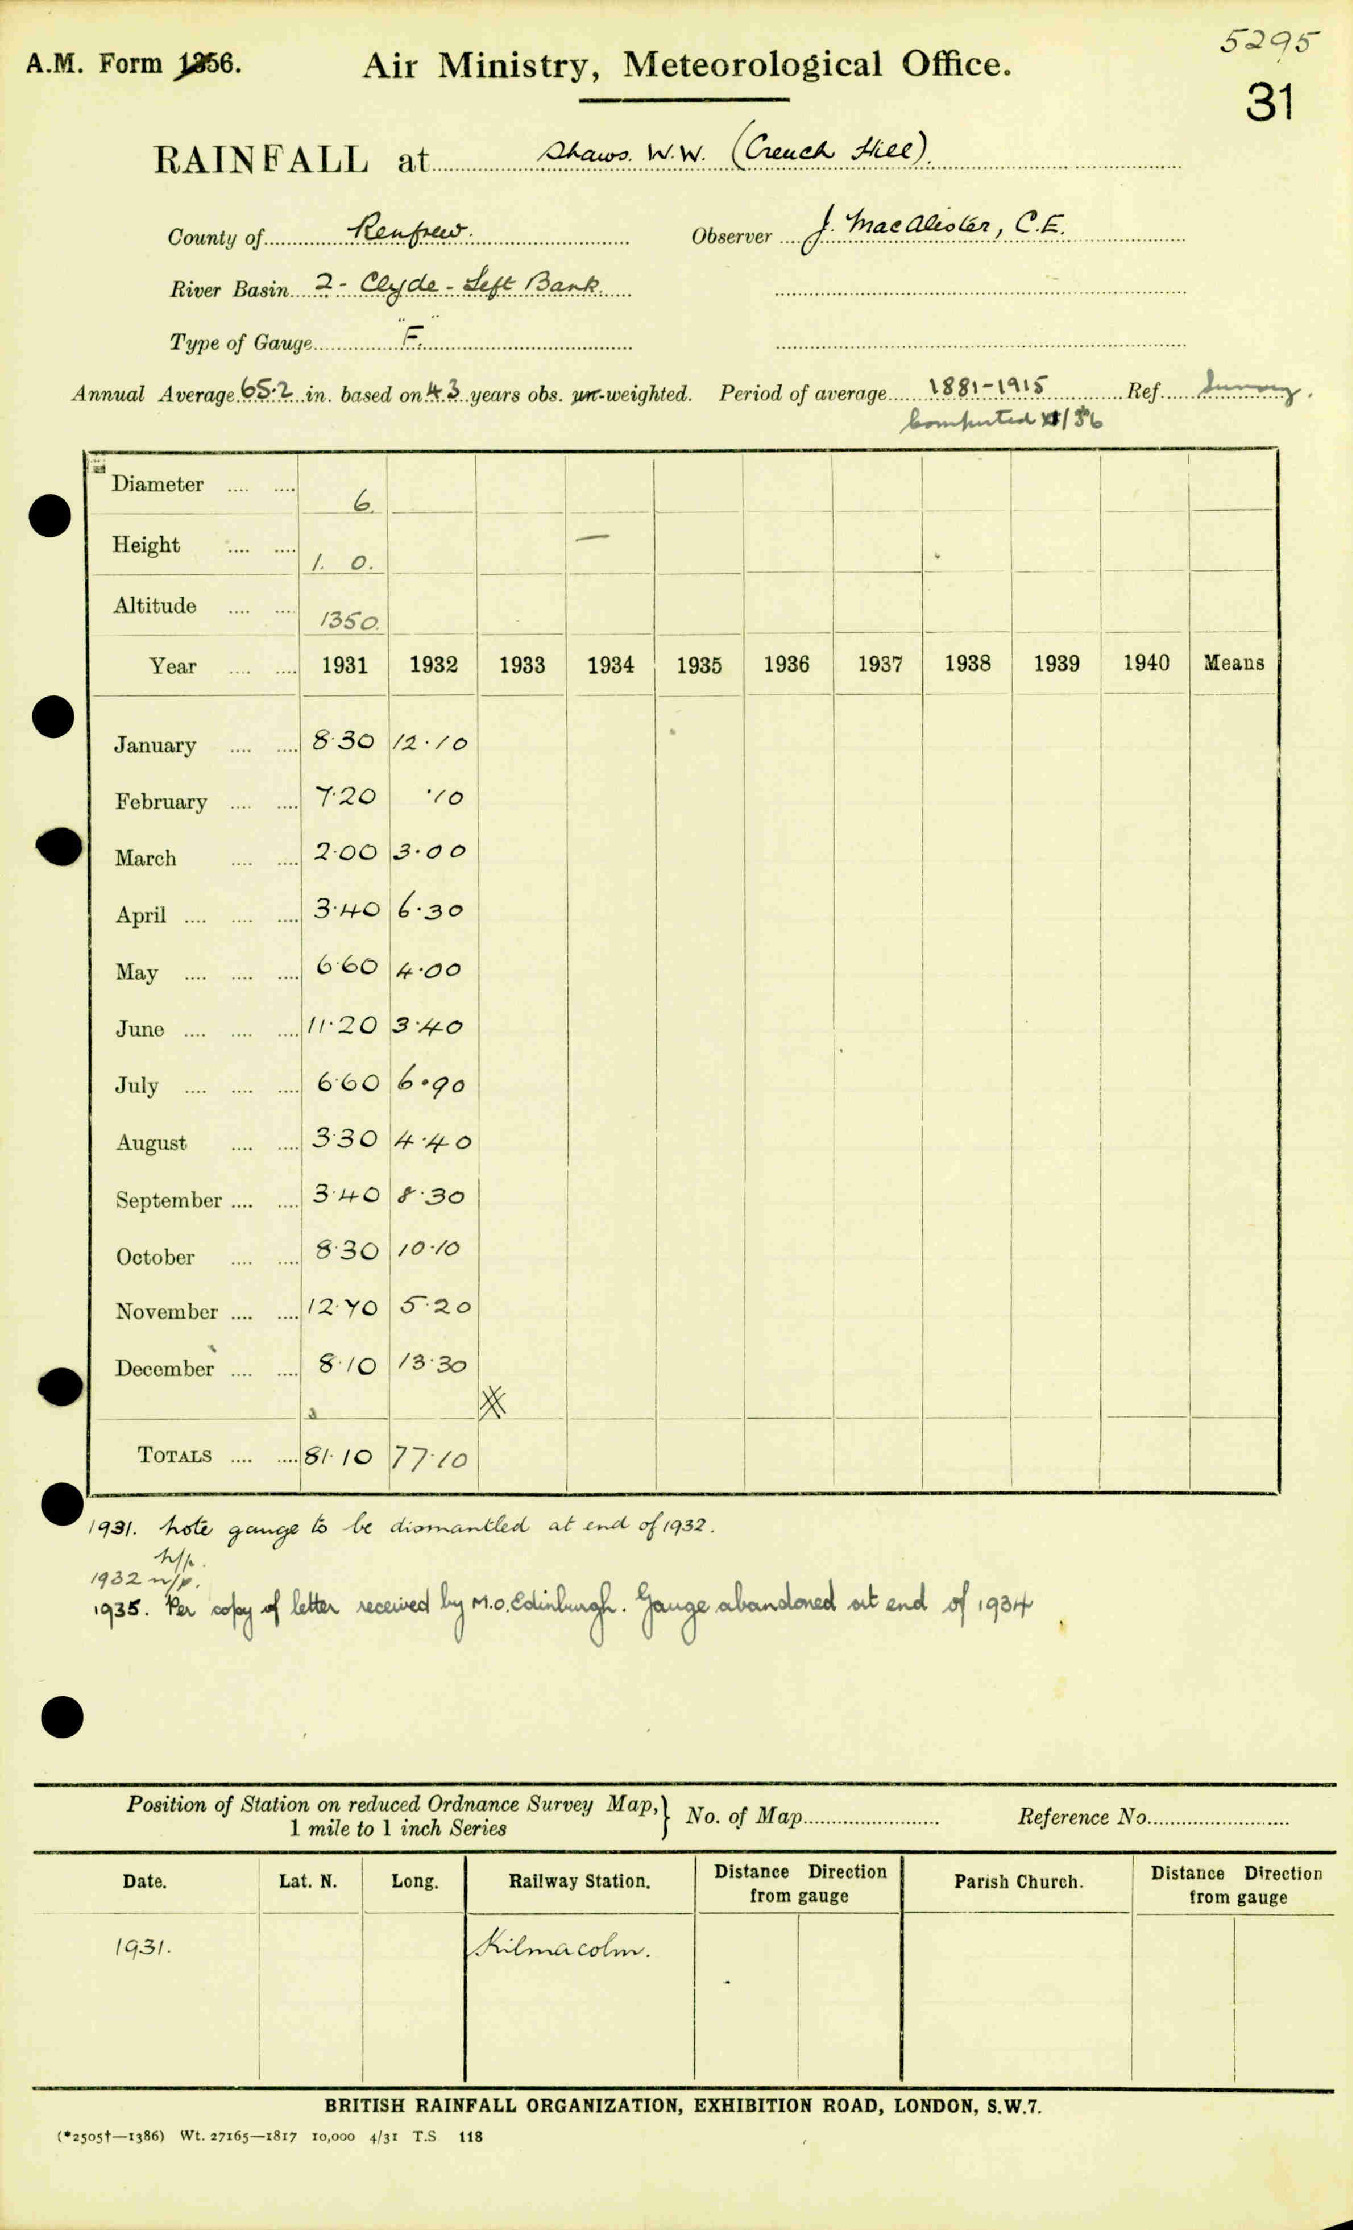 5295
A.M. Form 1356. Air Ministry, Meteorological Office.
31
RAINFALL at Shaws. W.W. (Creuch Hill).
County of Renfrew. Observer J. MacAlister, C.E.
River Basin 2 - Clyde - Left Bank.
Type of Gauge "F."
Annual Average 65·2 in. based on 43 years obs. un-weighted. Period of average 1881-1915 Ref. Survey.
Computed /36
Diameter .... .... 6.
Height .... .... 1. 0. —
Altitude .... .... 1350.
Year .... .... 1931 1932 1933 1934 1935 1936 1937 1938 1939 1940 Means
January .... .... 8·30 12·10
February .... .... 7·20 ·10
March .... .... 2·00 3·00
April .... .... .... 3·40 6·30
May .... .... .... 6·60 4·00
June .... .... .... 11·20 3·40
July .... .... .... 6·60 6·90
August .... .... 3·30 4·40
September .... .... 3·40 8·30
October .... .... 8·30 10·10
November .... .... 12·70 5·20
December .... .... 8·10 13·30
TOTALS .... .... 81·10 77·10
1931. Note gauge to be dismantled at end of 1932.
n/p.
1932 n/p.
1935. Per copy of letter received by M.O. Edinburgh. Gauge abandoned at end of 1934
Position of Station on reduced Ordnance Survey Map, } No. of Map Reference No.
1 mile to 1 inch Series
Date. Lat. N. Long. Railway Station. Distance Direction from gauge Parish Church. Distance Direction from gauge
1931. Kilmacolm.
BRITISH RAINFALL ORGANIZATION, EXHIBITION ROAD, LONDON, S.W.7.
(*2505†—1386) Wt. 27165—1817 10,000 4/31 T.S 118